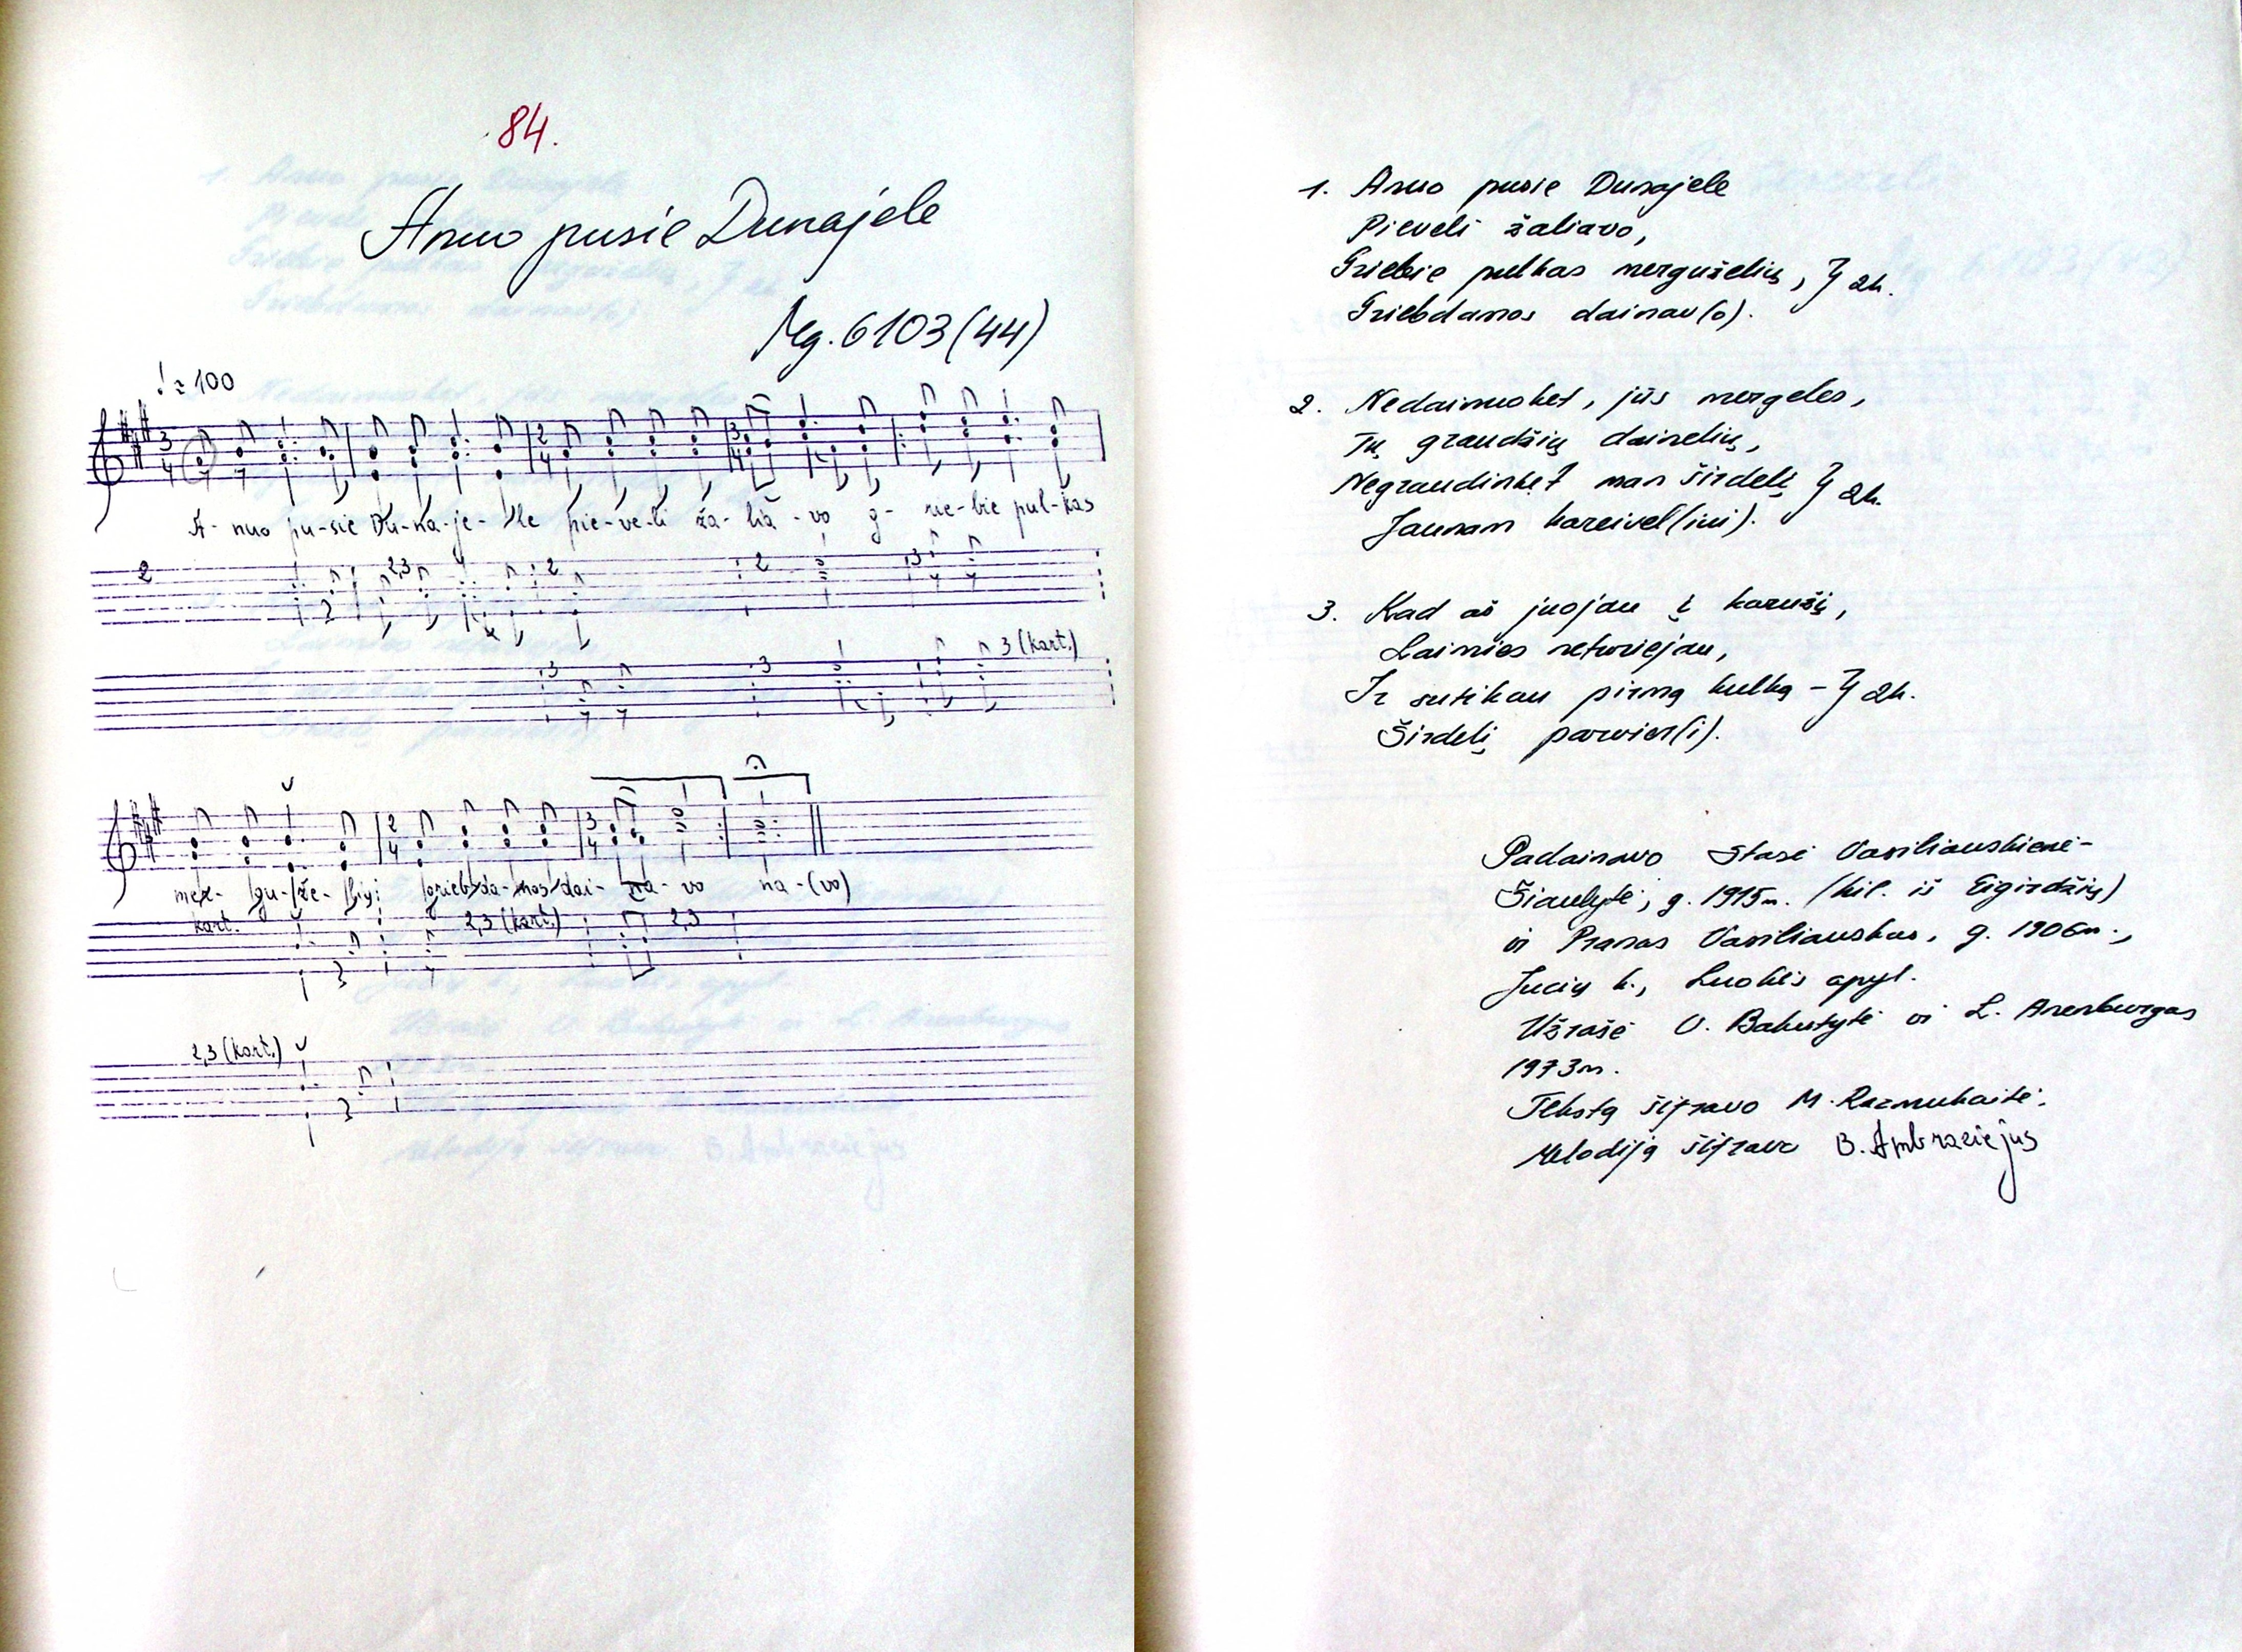 84.
Anuo pusie Dunajele
Mg. 6103 (44)
♩ = 100
A- nuo pu-sie Du-na-je- le pie-ve-li ža-lia-vo g- rie-bie pul-kas
2 2,3 2 2 3
3 3 3 (kart.)
mer- gu-že- lių; grieb-da-mos dai- na- vo na-(vo)
kart. 2,3 (kart.) 2,3
2,3 (kart.)
1. Anuo pusie Dunajele
Pieveli žaliavo,
Griebie pulkas mergužėlių, } 2k.
Griebdamos dainav(o).
2. Nedainuoket, jūs mergeles,
Tų graudžių dainelių,
Negraudinket man širdelį } 2k.
Jaunam kareivel(iui).
3. Kad aš juojau į karužį,
Laimies neturiejau,
Ir sutikau pirmą kulką – } 2k.
Širdelį parvier(i).
Padainavo Stasė Vasiliauskienė-
Šiaulytė, g. 1915m. (kil. iš Eigirdžių)
ir Pranas Vasiliauskas, g. 1906m.,
Jucių k., Luokės apyl.
Užrašė V. Bakutytė ir L. Arenburgas
1973m.
Tekstą šifravo M. Razmukaitė.
Melodiją šifravo B. Ambraziejus